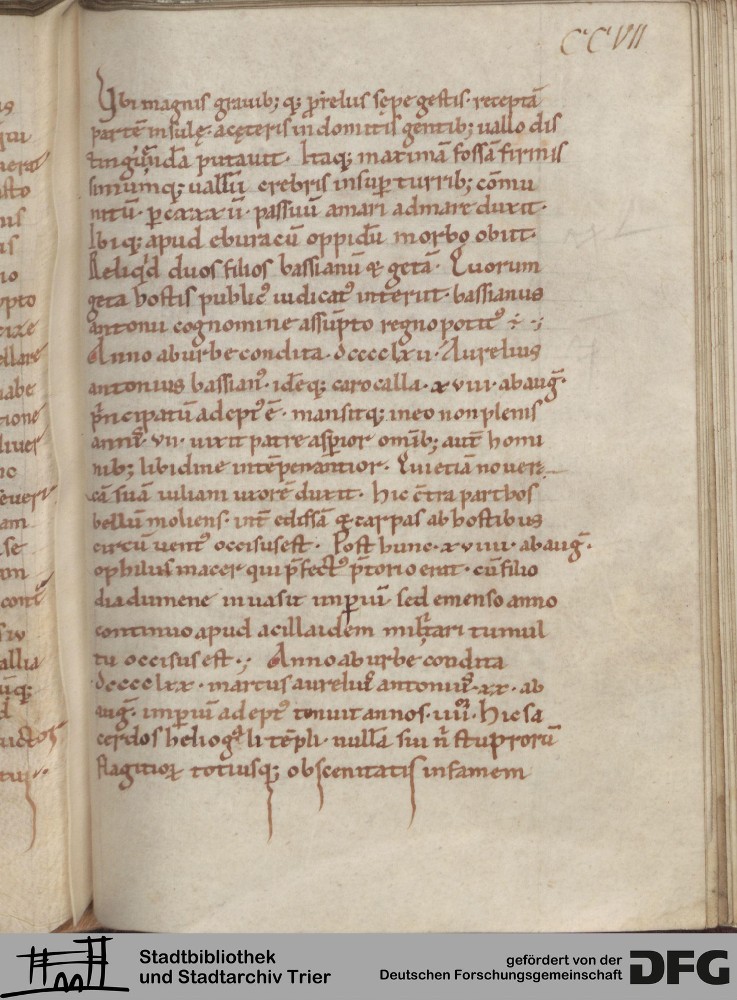 CCVII
Ubi magnis grauib; q; p̄relus sępe gestis · receptā
partē insulę · a cęteris indomitis gentib; uallo dis
tinguendā putauit · Itaq; maximā fossā firmis
simumq; uallū crebris insup turrib; cōmu
nitū · p cxxxii · passuū amari admare duxit ·
Ibiq; apud eburacū oppidū morbo obiit ·
Reliqd duos filios bassianū & getā · Quorum
geta hostis public' iudicat' interiit · bassianus
antonii cognomine assūpto regno potit'
Anno aburbe condita · dcccclxii · Aurelius
antonius bassian' · idēq; carocalla · xviii · abauḡ ·
p̄ncipatū adept' ē · mansitq; in eo non plenis
annis vii · uixit patre asperior omib; aut̄ homi
nib; libidine intēperantior · Qui etiā nouer
cā suā iuliam uxorē duxit · hic c̄tra parthos
bellū moliens · int̄ edissā & carpas ab hostibus
circūuent' occisus est · Post hunc · xviiii · abauḡ ·
ophilus macer qui p̄fect' p̄torio erat · cū filio
diadumene inuasit impiū sed emenso anno
continuo apud acillaidem militari tumul
tu occisus est · Anno ab urbe condita
dcccclxx · marcus aurelius antonius · xx · ab
auḡ · impiū adept' tenuit annos · iiii · Hic sa
cerdos heliogali tēpli nullā sui n̄ stuprorū
flagitior totiusq; obscenitatis infamem
Stadtbibliothek
und Stadtarchiv Trier
gefördert von der
Deutschen Forschungsgemeinschaft
DFG